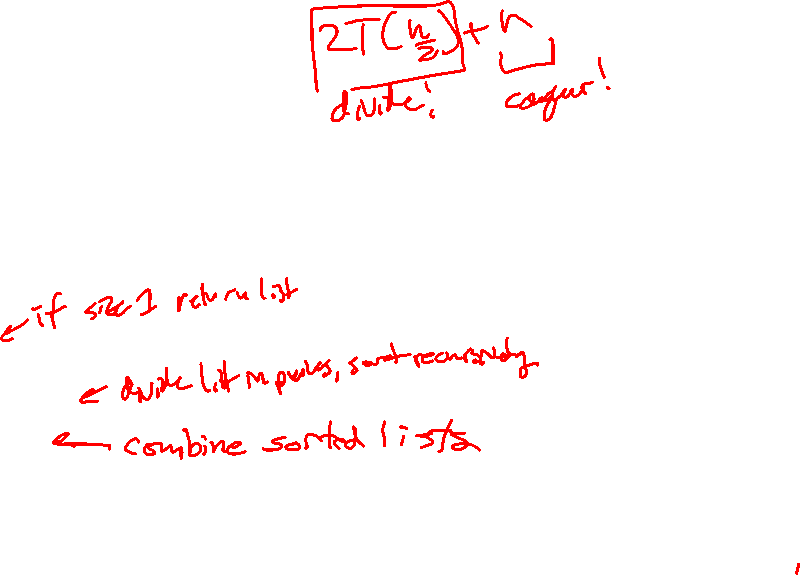 2T(n/2) + n
divide! conquer!
if size 1 return list
divide list in pieces, sort recursively
combine sorted lists